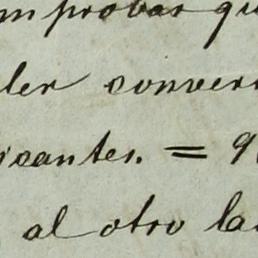 mprobar qu
ler conver
isantes. = 9
al otro la